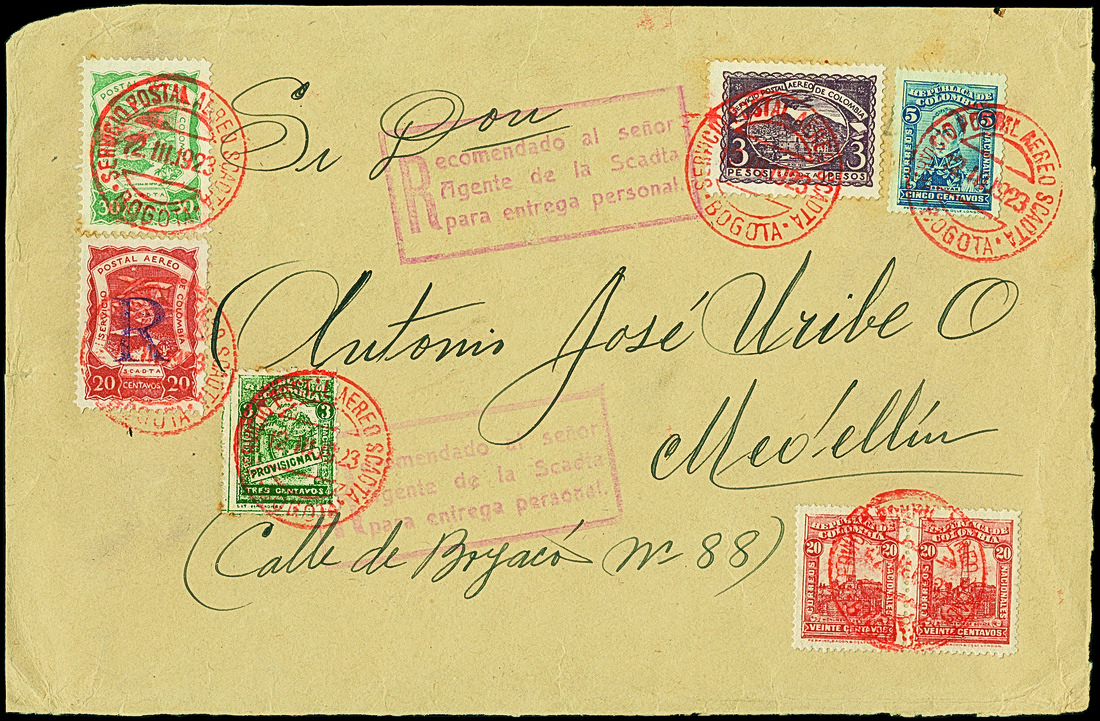 POSTAL AEREO
30 30
SERVICIO POSTAL AEREO SCADTA
12.III.1923
BOGOTA
SERVICIO POSTAL AEREO DE COLOMBIA
R
SCADTA
20 CENTAVOS 20
SCADTA
Sr Don
Recomendado al señor
Agente de la Scadta
para entrega personal.
SERVICIO POSTAL AEREO DE COLOMBIA
3 3
PESOS PESOS
SERVICIO POSTAL AEREO SCADTA
1923
BOGOTA
REPUBLICA DE
COLOMBIA
5 5
CORREOS NACIONALES
CINCO CENTAVOS
POSTAL AEREO SCADTA
1923
BOGOTA
(Antonio José Uribe O
Medellín
3 3
PROVISIONAL
TRES CENTAVOS
POSTAL AEREO SCADTA
1923
Recomendado al señor
Agente de la Scadta
para entrega personal.
(Calle de Boyacá Nº 88)
REPUBLICA DE
COLOMBIA
20 20
CORREOS NACIONALES
VEINTE CENTAVOS
REPUBLICA DE
COLOMBIA
20 20
CORREOS NACIONALES
VEINTE CENTAVOS